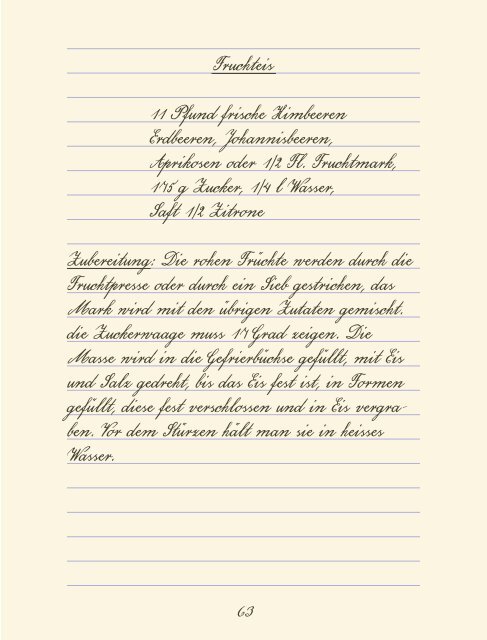 Fruchteis
11 Pfund frische Himbeeren
Erdbeeren, Johannisbeeren,
Aprikosen oder 1/2 Fl. Fruchtmark,
175 g Zucker, 1/4 l Wasser,
Saft 1/2 Zitrone
Zubereitung: Die rohen Früchte werden durch die
Fruchtpresse oder durch ein Sieb gestrichen, das
Mark wird mit den übrigen Zutaten gemischt.
die Zuckerwaage muss 17 Grad zeigen. Die
Masse wird in die Gefrierbüchse gefüllt, mit Eis
und Salz gedreht, bis das Eis fest ist, in Formen
gefüllt, diese fest verschlossen und in Eis vergra-
ben. Vor dem Stürzen hält man sie in heisses
Wasser.
63